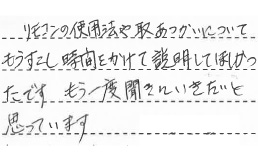 リモコンの使用法や取あつかいについて
もうすこし時間をかけて説明してほしかっ
たです もう一度聞きにいきたいと
思っています